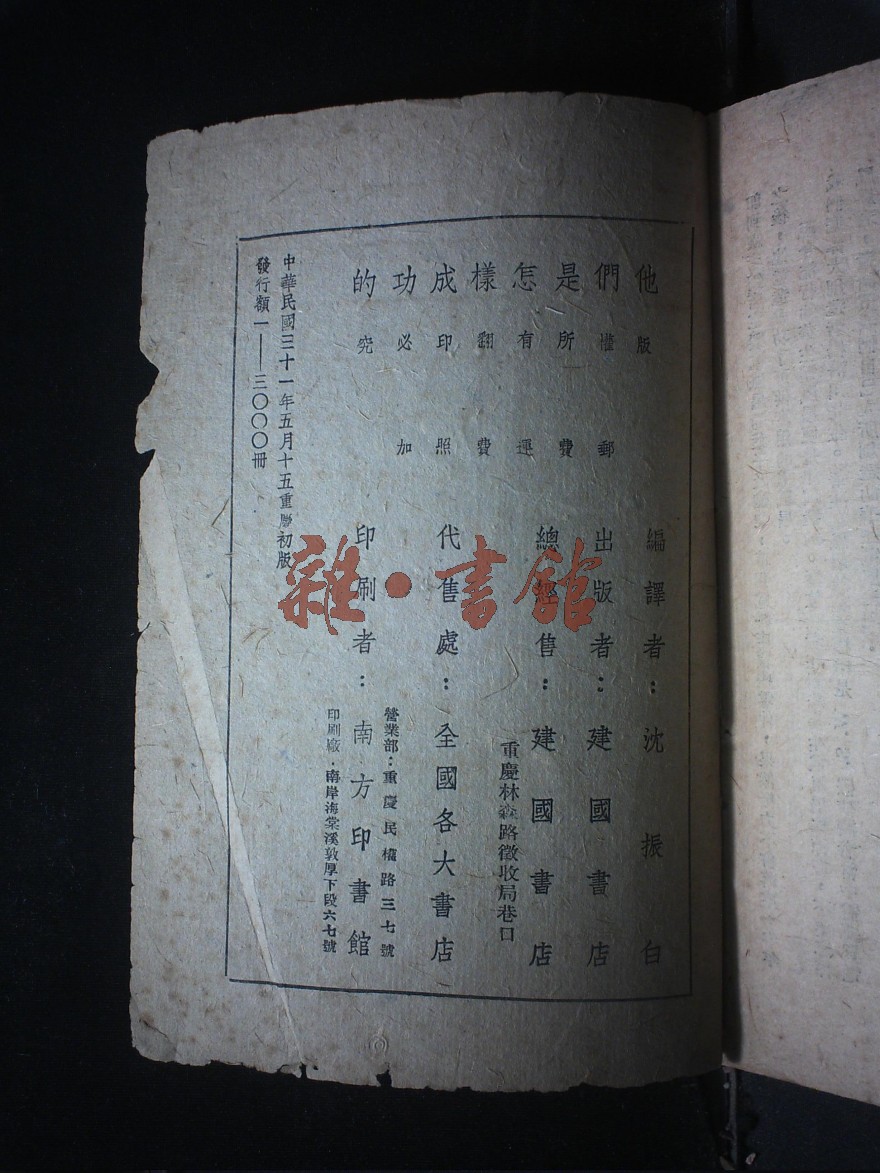 他們是怎樣成功的
版權所有翻印必究
郵費運費照加
編譯者：沈振白
出版者：建國書店
總經售：建國書店
重慶林森路徵收局巷口
代售處：全國各大書店
營業部：重慶民權路三七號
印刷者：南方印書館
印刷廠．南岸海棠溪敦厚下段六七號
中華民國三十一年五月十五重初版
發行額一——三〇〇〇冊
雜·書館